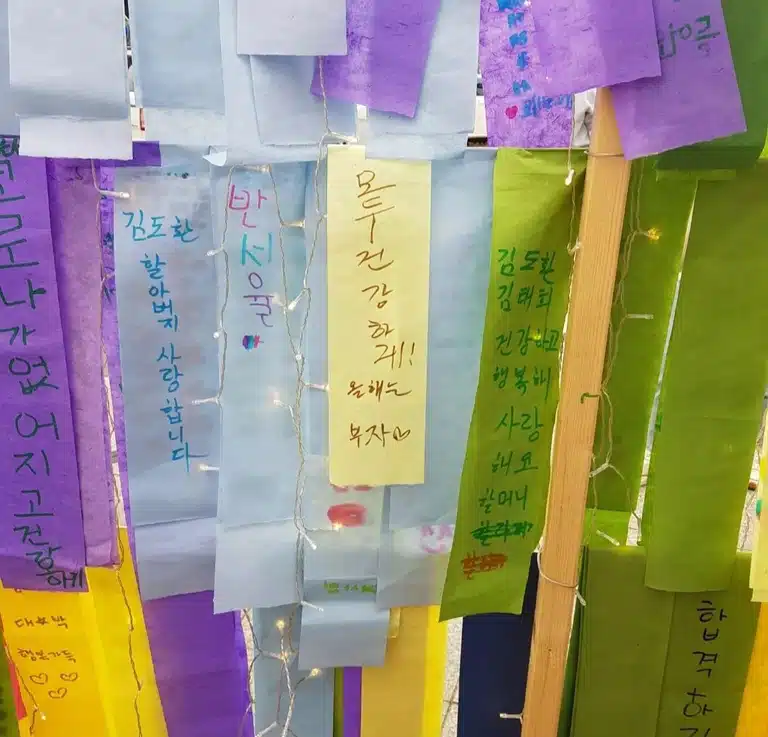 코로나가 없어지고 건강하게
김도환
할아버지 사랑합니다
반서율
모두 건강하게!
올해는
부자♡
김도환
김태희
건강하고
행복해
사랑
해요
할머니
대박
행복가득
♡♡♡
합격하